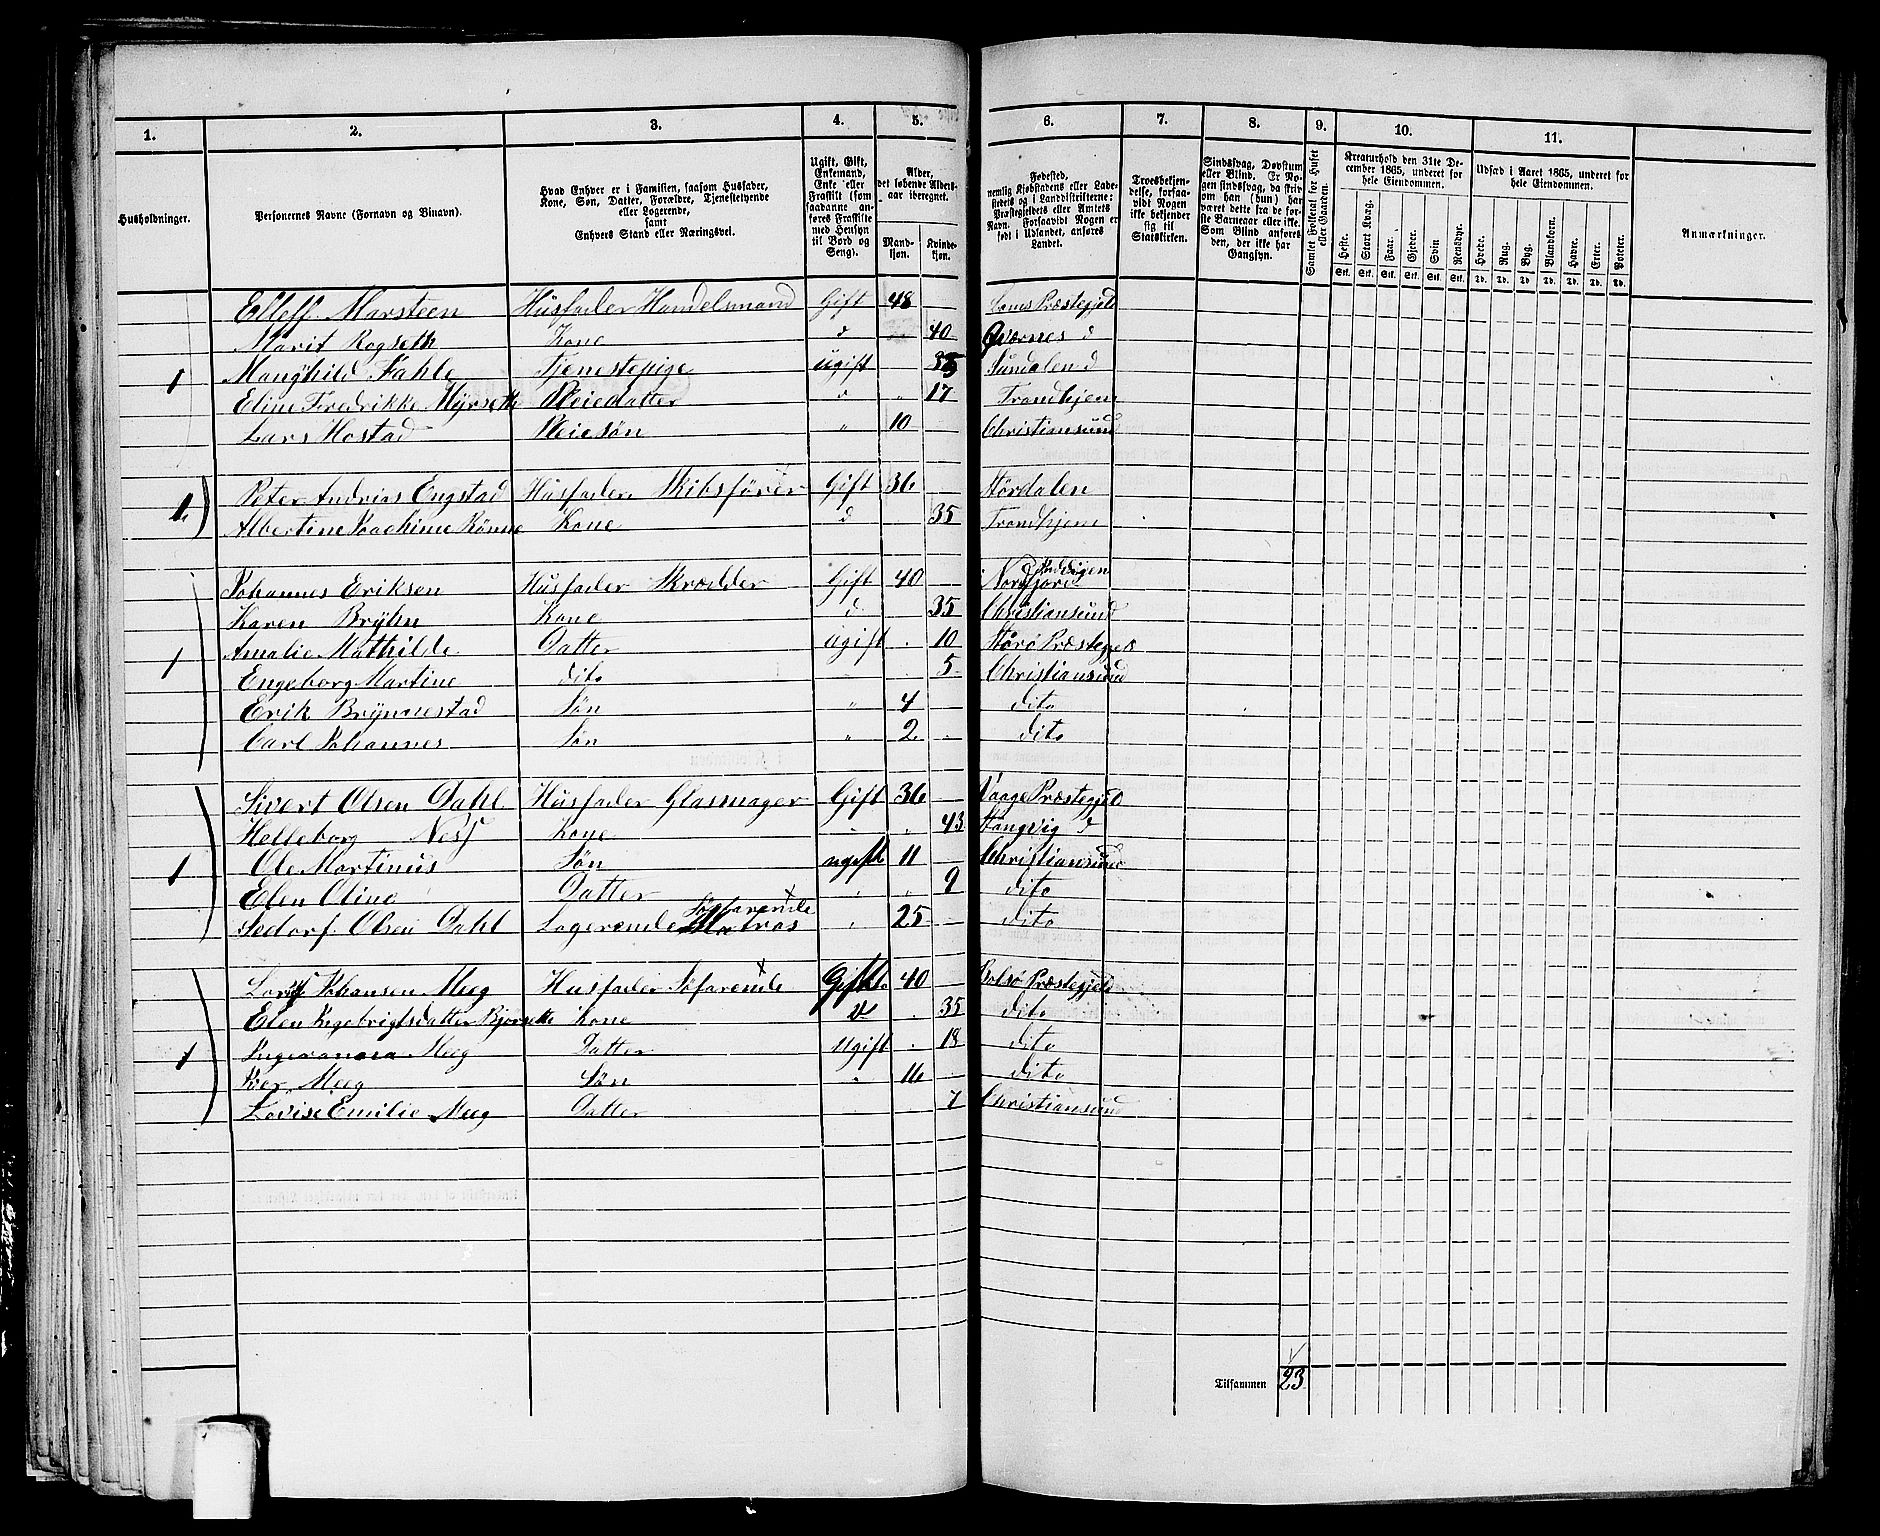 1. 2. 3. 4. 5. 6. 7. 8. 9. 10. 11.
Husholdninger.
Personernes Navne (Fornavn og Binavn).
Hvad Enhver er i Familien, saasom Husfader,
Kone, Søn, Datter, Forældre, Tjenestetyende
eller Logerende,
samt
Enhvers Stand eller Næringsvei.
Ugift, Gift,
Enkemand,
Enke eller
Fraskilt (som
saadanne an-
føres Fraskilte
med Hensyn
til Bord og
Seng).
Alder,
det løbende Alders-
aar iberegnet.
Mand-
kjøn.
Kvinde-
kjøn.
Fødested,
nemlig Kjøbstadens eller Lade-
stedets og i Landdistrikterne:
Præstegjeldets eller Amtets
Navn. Forsaavidt Nogen er
født i Udlandet, anføres
Landet.
Troesbekjen-
delse, forsaa-
vidt Nogen
ikke bekjender
sig til
Statskirken.
Sindssvag, Døvstum
eller Blind. Er No-
gen sindssvag, da skriv
om han (hun) har
været dette fra de før-
ste Barneaar eller ikke.
Som Blind anføres
den, der ikke har
Gangsyn.
Samlet Folketal for Huset
eller Gaarden.
Kreaturhold den 31te De-
cember 1865, underet for
hele Eiendommen.
Heste. Stort Kvæg. Faar. Gjeder. Svin Rensdyr.
Stk. Stk. Stk. Stk. Stk. Stk.
Udsæd i Aaret 1865, underet for
hele Eiendommen.
Hvede. Rug. Byg. Blandkorn. Havre. Erter. Poteter.
Td. Td. Td. Td. Td. Td. Td.
Anmærkninger.
Elleff Marsteen Husfader Handelsmand Gift 48 Præstegjeld
Marit Rogseth Kone d 40 Qværnes d
1 Manghild Fahle Tjenestepige ugift 35 Sundalen d
Eline Fredrikke Myrseth Pleiedatter d " 17 Trondhjem
Lars Hostad Pleiesøn " 10 Christiansund
1 Peter Andrias Engstad Husfader Skibsfører Gift 36 Størdalen
Albertine Joachime Rönne Kone d 35 Trondhjem
Johannes Eriksen Husfader Skrædder Gift 40 Nordfjord
Karen Brÿhn Kone d 35 Christiansund
1 Amalie Mathilde Datter Ugift 10 Størø Præstegjeld
Engeborg Martine dito 5 Christiansund
Erik Brÿnnestad Søn " 4 dito
Carl Johannes Søn " 2 dito
Sivert Olsen Dahl Husfader Glasmager Gift 36 Vaage Præstegjeld
Holleborg Ness Kone " 43 Stangvig d
1 Ole Martinus Søn ugift 11 Christiansund
Elen Oline Datter " 9 dito
Sedorf Olsen Dahl Logerende Søfarende Matros " 25 dito
Johansen Meeg Husfader Søfarende Gift 40 Bolsø Præstegjeld
Elen Ingebrigtsdatter Bjorseth Kone d 35 dito
1 Meeg Datter Ugift 18 dito
Iver Meeg Søn " 16 dito
Lovise Emilie Meeg Datter 7 Christiansund
Tilsammen 23